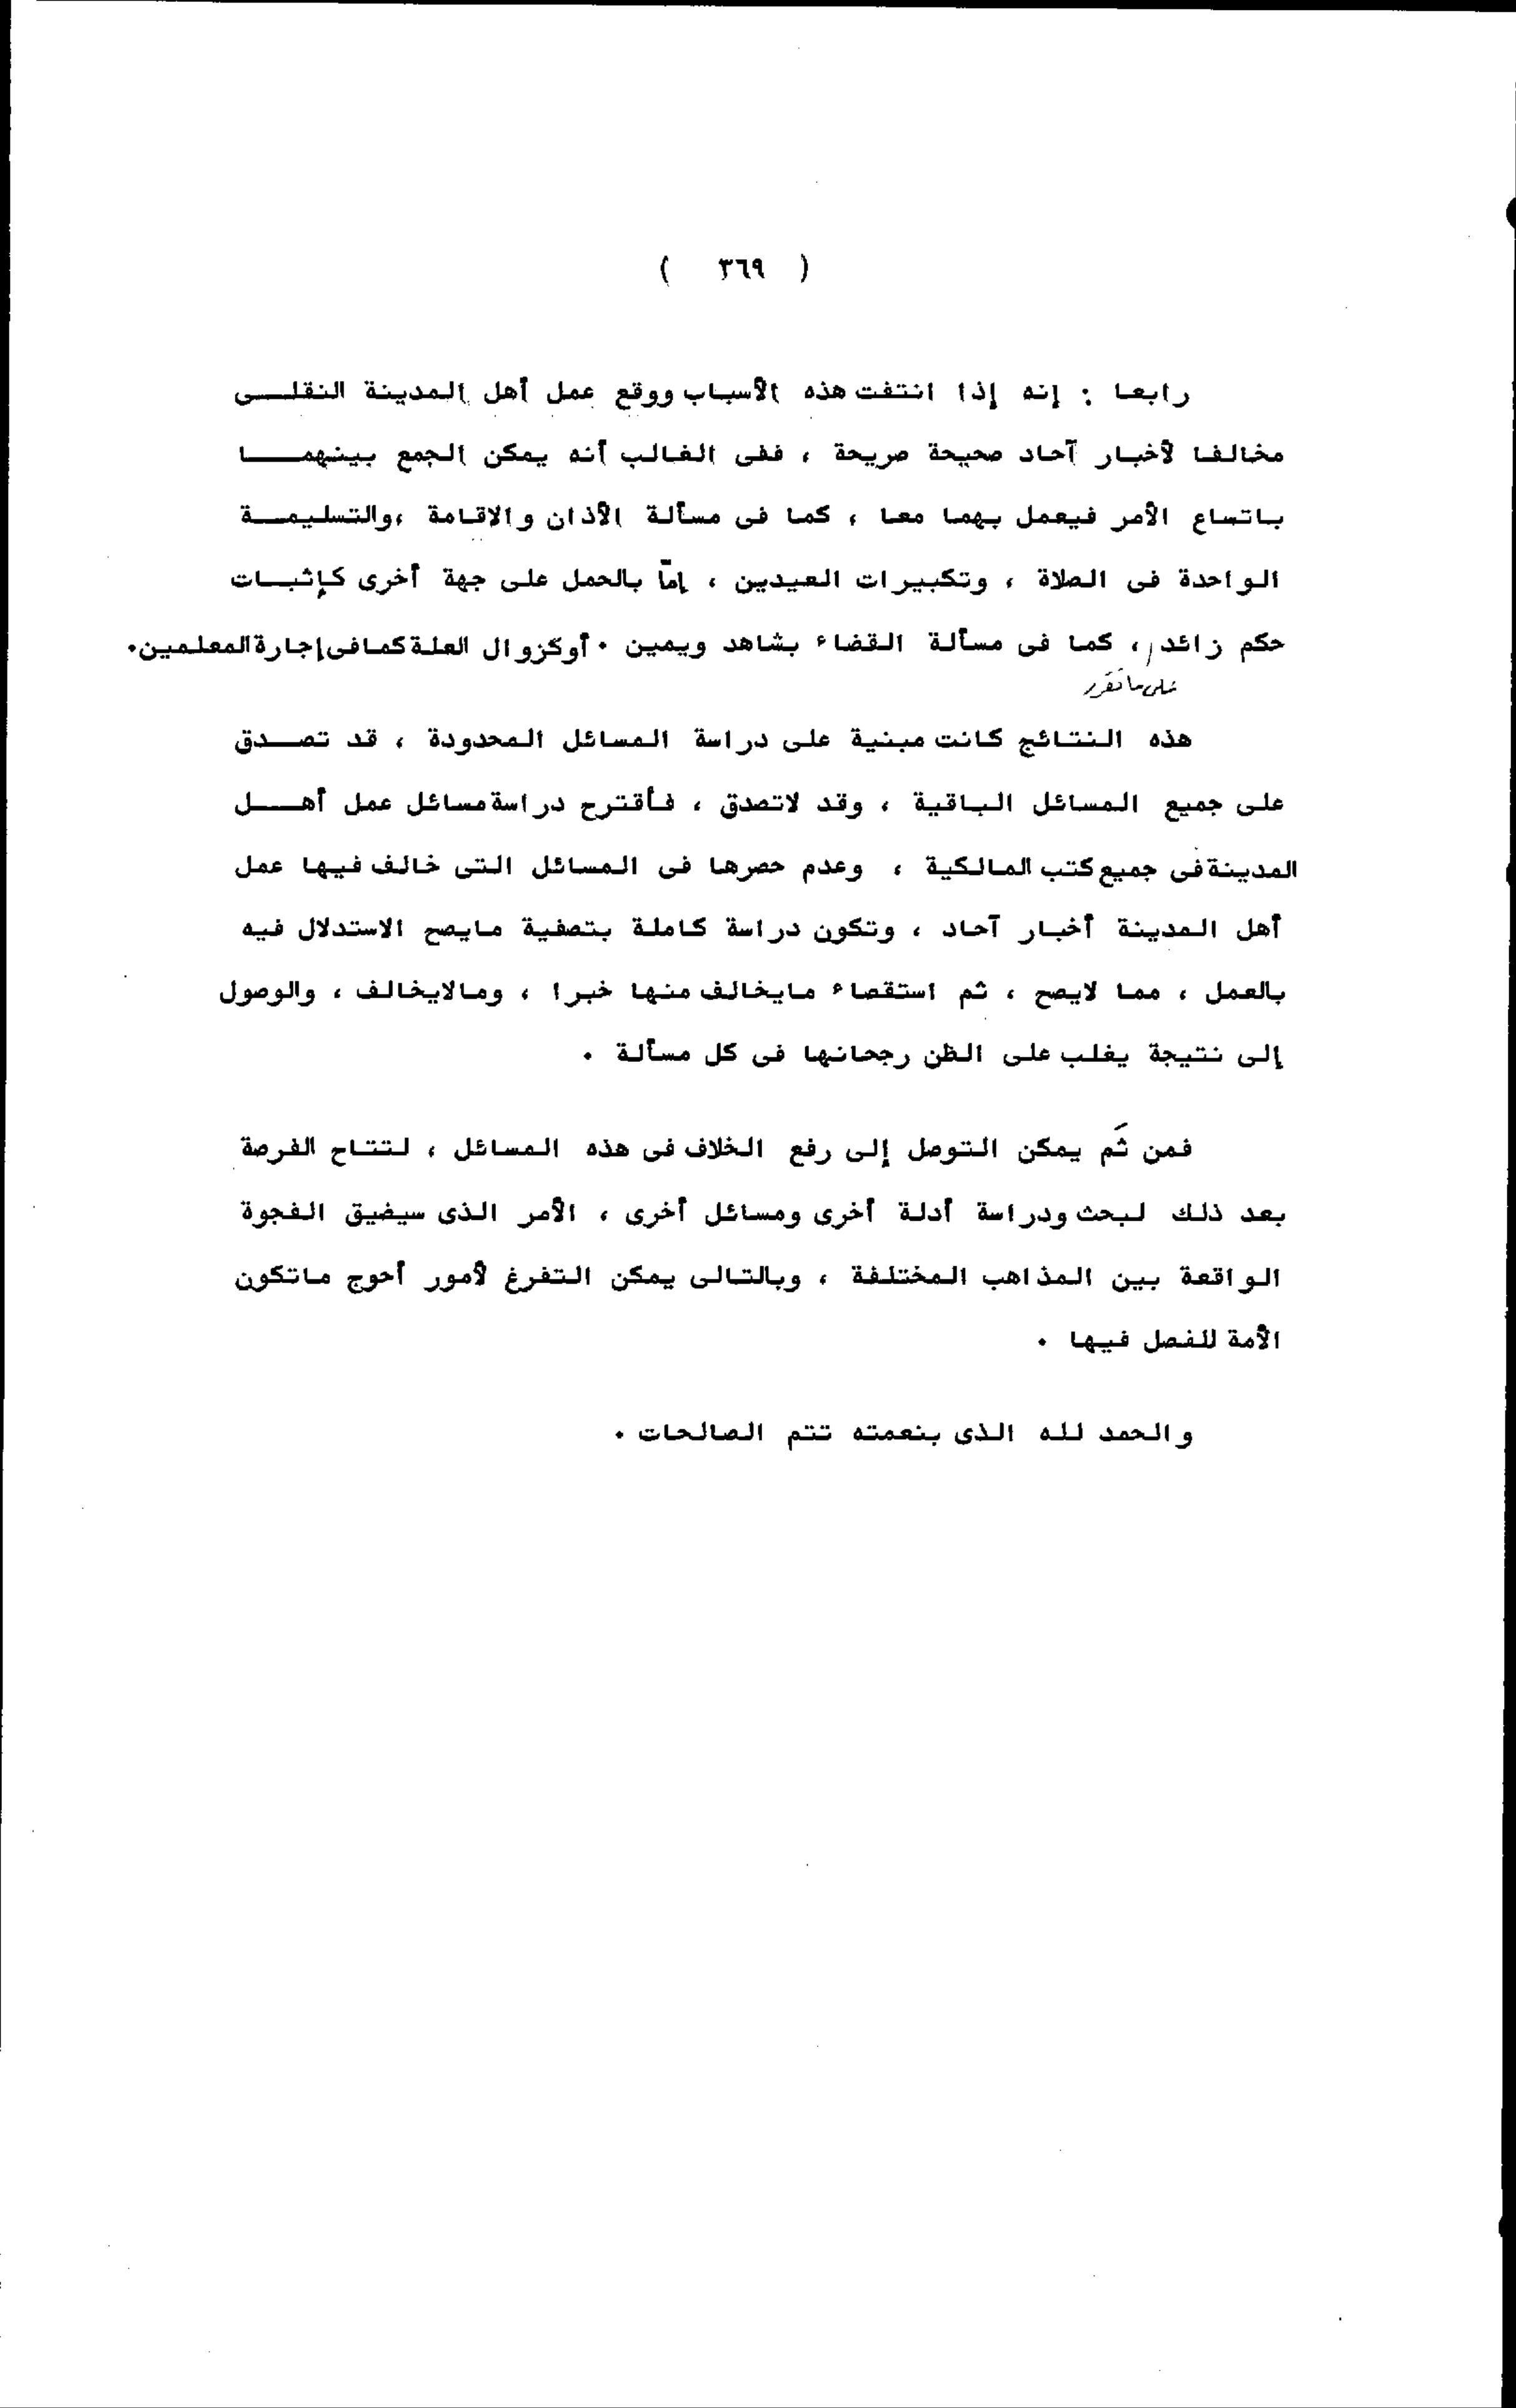 ( ٣٦٩ )
رابعا : إنه إذا انتفت هذه الأسباب ووقع عمل أهل المدينة النقلى
مخالفا لأخبار آحاد صحيحة صريحة ، ففى الغالب أنه يمكن الجمع بينهما
باتساع الأمر فيعمل بهما معا ، كما فى مسألة الأذان والاقامة ،والتسليمة
الواحدة فى الصلاة ، وتكبيرات العيدين ، إمّا بالحمل على جهة أخرى كإثبات
حكم زائد ، كما فى مسألة القضاء بشاهد ويمين ٠ أوكزوال العلة كمافى إجارة المعلمين٠
على ما تقرر
هذه النتائج كانت مبنية على دراسة المسائل المحدودة ، قد تصدق
على جميع المسائل الباقية ، وقد لاتصدق ، فأقترح دراسة مسائل عمل أهل
المدينة فى جميع كتب المالكية ، وعدم حصرها فى المسائل التى خالف فيها عمل
أهل المدينة أخبار آحاد ، وتكون دراسة كاملة بتصفية مايصح الاستدلال فيه
بالعمل ، مما لايصح ، ثم استقصاء مايخالف منها خبرا ، ومالايخالف ، والوصول
إلى نتيجة يغلب على الظن رجحانها فى كل مسألة ٠
فمن ثَم يمكن التوصل إلى رفع الخلاف فى هذه المسائل ، لتتاح الفرصة
بعد ذلك لبحث ودراسة أدلة أخرى ومسائل أخرى ، الأمر الذى سيضيق الفجوة
الواقعة بين المذاهب المختلفة ، وبالتالى يمكن التفرغ لأمور أحوج ماتكون
الأمة للفصل فيها ٠
والحمد لله الذى بنعمته تتم الصالحات ٠